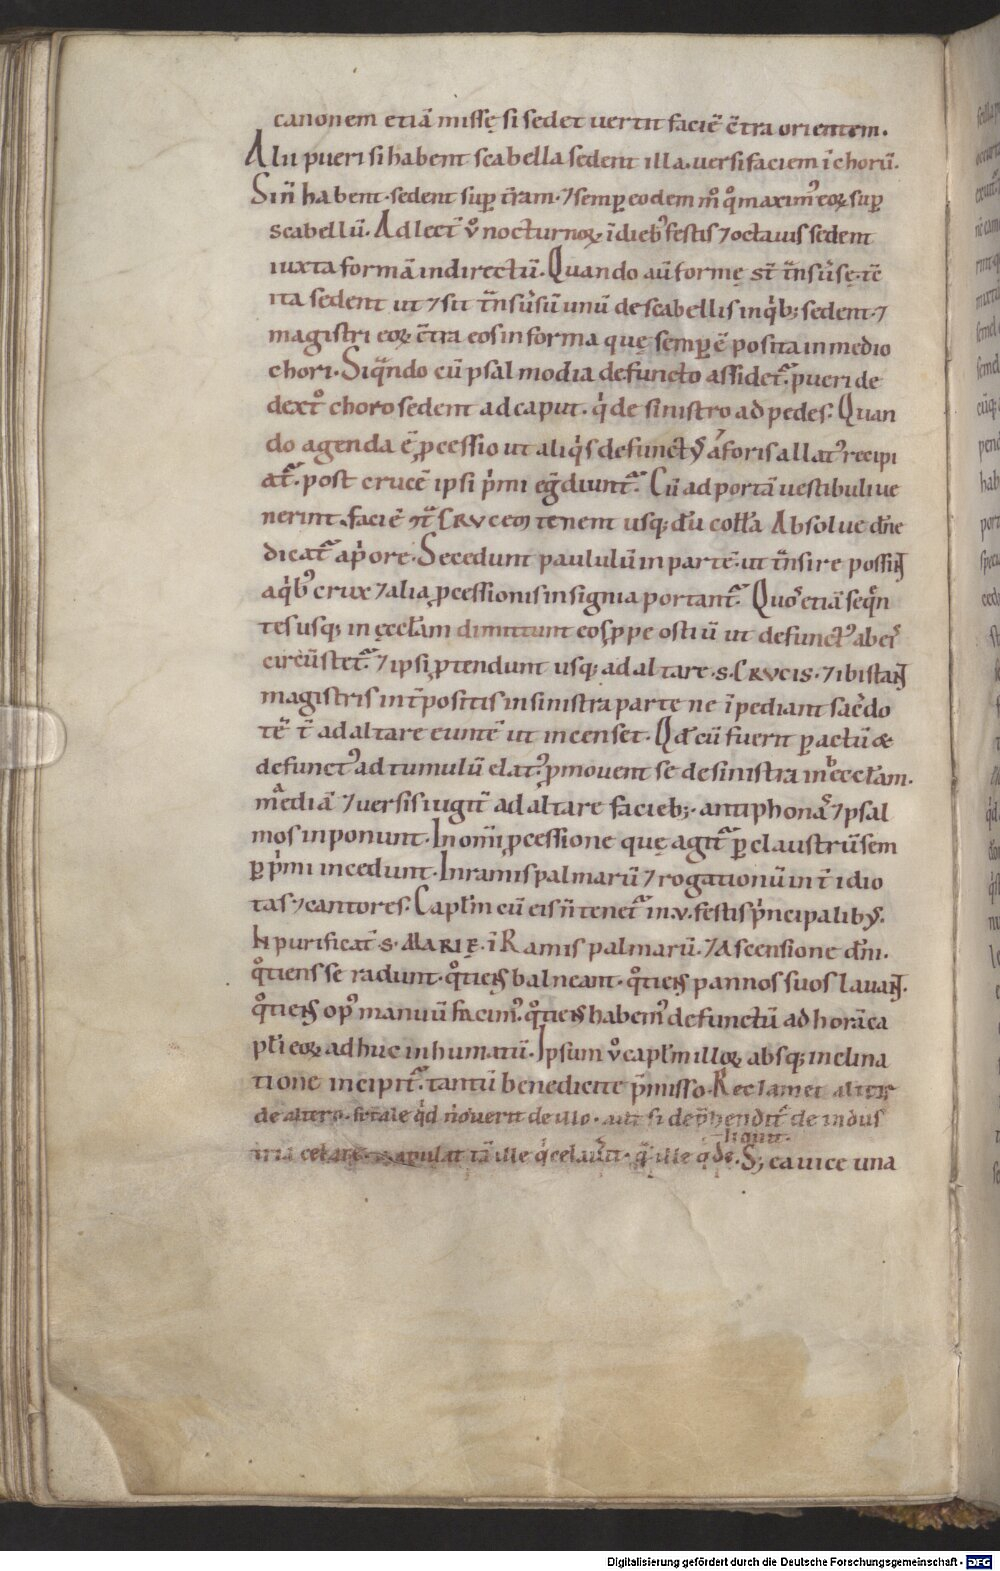 canonem etiã missę si sedet uertit faciē c̄tra orientem.
Alii pueri si habent scabella sedent illa. uersi faciem ī chorū.
Sin̄ habent. sedent sup̄ t̄ram. ⁊ semp̄ eodem m̊ q̊ maximꝰ eoꝝ sup̄
scabellū. Ad lect̄ ů nocturnoꝝ īdiebꝰ festis ⁊ octauis sedent
iuxta formā indirectū. Quando aū formę st̄ t̄nsūsę. tē
ita sedent ut ⁊ sit t̄nsūsū unū de scabellis in qͥb; sedent. ⁊
magistri eoꝝ c̄tra eos in forma quę semp̄ ē posita in medio
chori. Siqᷓndo cū psalmodia defuncto assidet᷑. pueri de
dext̊ choro sedent ad caput. qͥ de sinistro ad pedes. Quan
do agenda ē ꝓcessio ut aliqͥs defunctꝰ aforis allatꝰ recipi
at᷑. post crucē ipsi pͥmi egᷓdiunt᷑. Cū ad portā uestibuli ue
nerint. faciē CRVCEM tenent usq; dū coll̄a Absolue dn̄e
dicat᷑ apͥore. Secedunt paululū in partē. ut t̄nsire possint
aqͥbꝰ crux ⁊ alia ꝓcessionis insignia portant᷑. Quos etiā seqn̄
tes usq; in ęccl̄am dimittunt eos ꝓpe ostiū ut defunctꝰ abeis
circūstet᷑. ⁊ ipsi ꝓtendunt usq; ad altare .s. CRVCIS. ⁊ ibi stant
magistris int̄positis in sinistra parte ne īpediant sac̄do
tē t̄ ad altare euntē ut incenset. Qd̄ cū fuerit pactū &
defunctꝰ ad tumulū elatꝰ. ꝓmouent se de sinistra in ęccl̄am.
mediā ⁊ uersis iugit̄ ad altare facieb;. antiphonas ⁊ psal
mos inponunt. In om̄i ꝓcessione quę agit᷑ ꝑ claustrū sem
ꝑ pͥmi incedunt. In ramis palmarū ⁊ rogationū int̄ idio
tas ⁊ cantores. Capl̄m cū eis n̄ tenet᷑ in .v. festis pͥncipalibꝰ.
In purificat̄ .S. MARIĘ. ī Ramis palmarū. ⁊ Ascensione dn̄i.
q̊tiens se radunt. q̊tiens balneant. q̊tiens pannos suos lauant.
q̊tiens opꝰ manuū facimꝰ. q̊tiens habemꝰ defunctū ad horā ca
pl̄i eoꝝ adhuc inhumatū. Ipsum ů capl̄m illoꝝ absq; inclina
tione incipit᷑. tantū benedicite pᷓmisso. Reclamet alter
de altero. si tale qͥd nouerit de illo. aut si dep̄hendit̄ de indus
lignit.
tria celare. uapulat tā ille qͥ celauit. qᷓ ille S; ea uice una
Digitalisierung gefördert durch die Deutsche Forschungsgemeinschaft - DFG